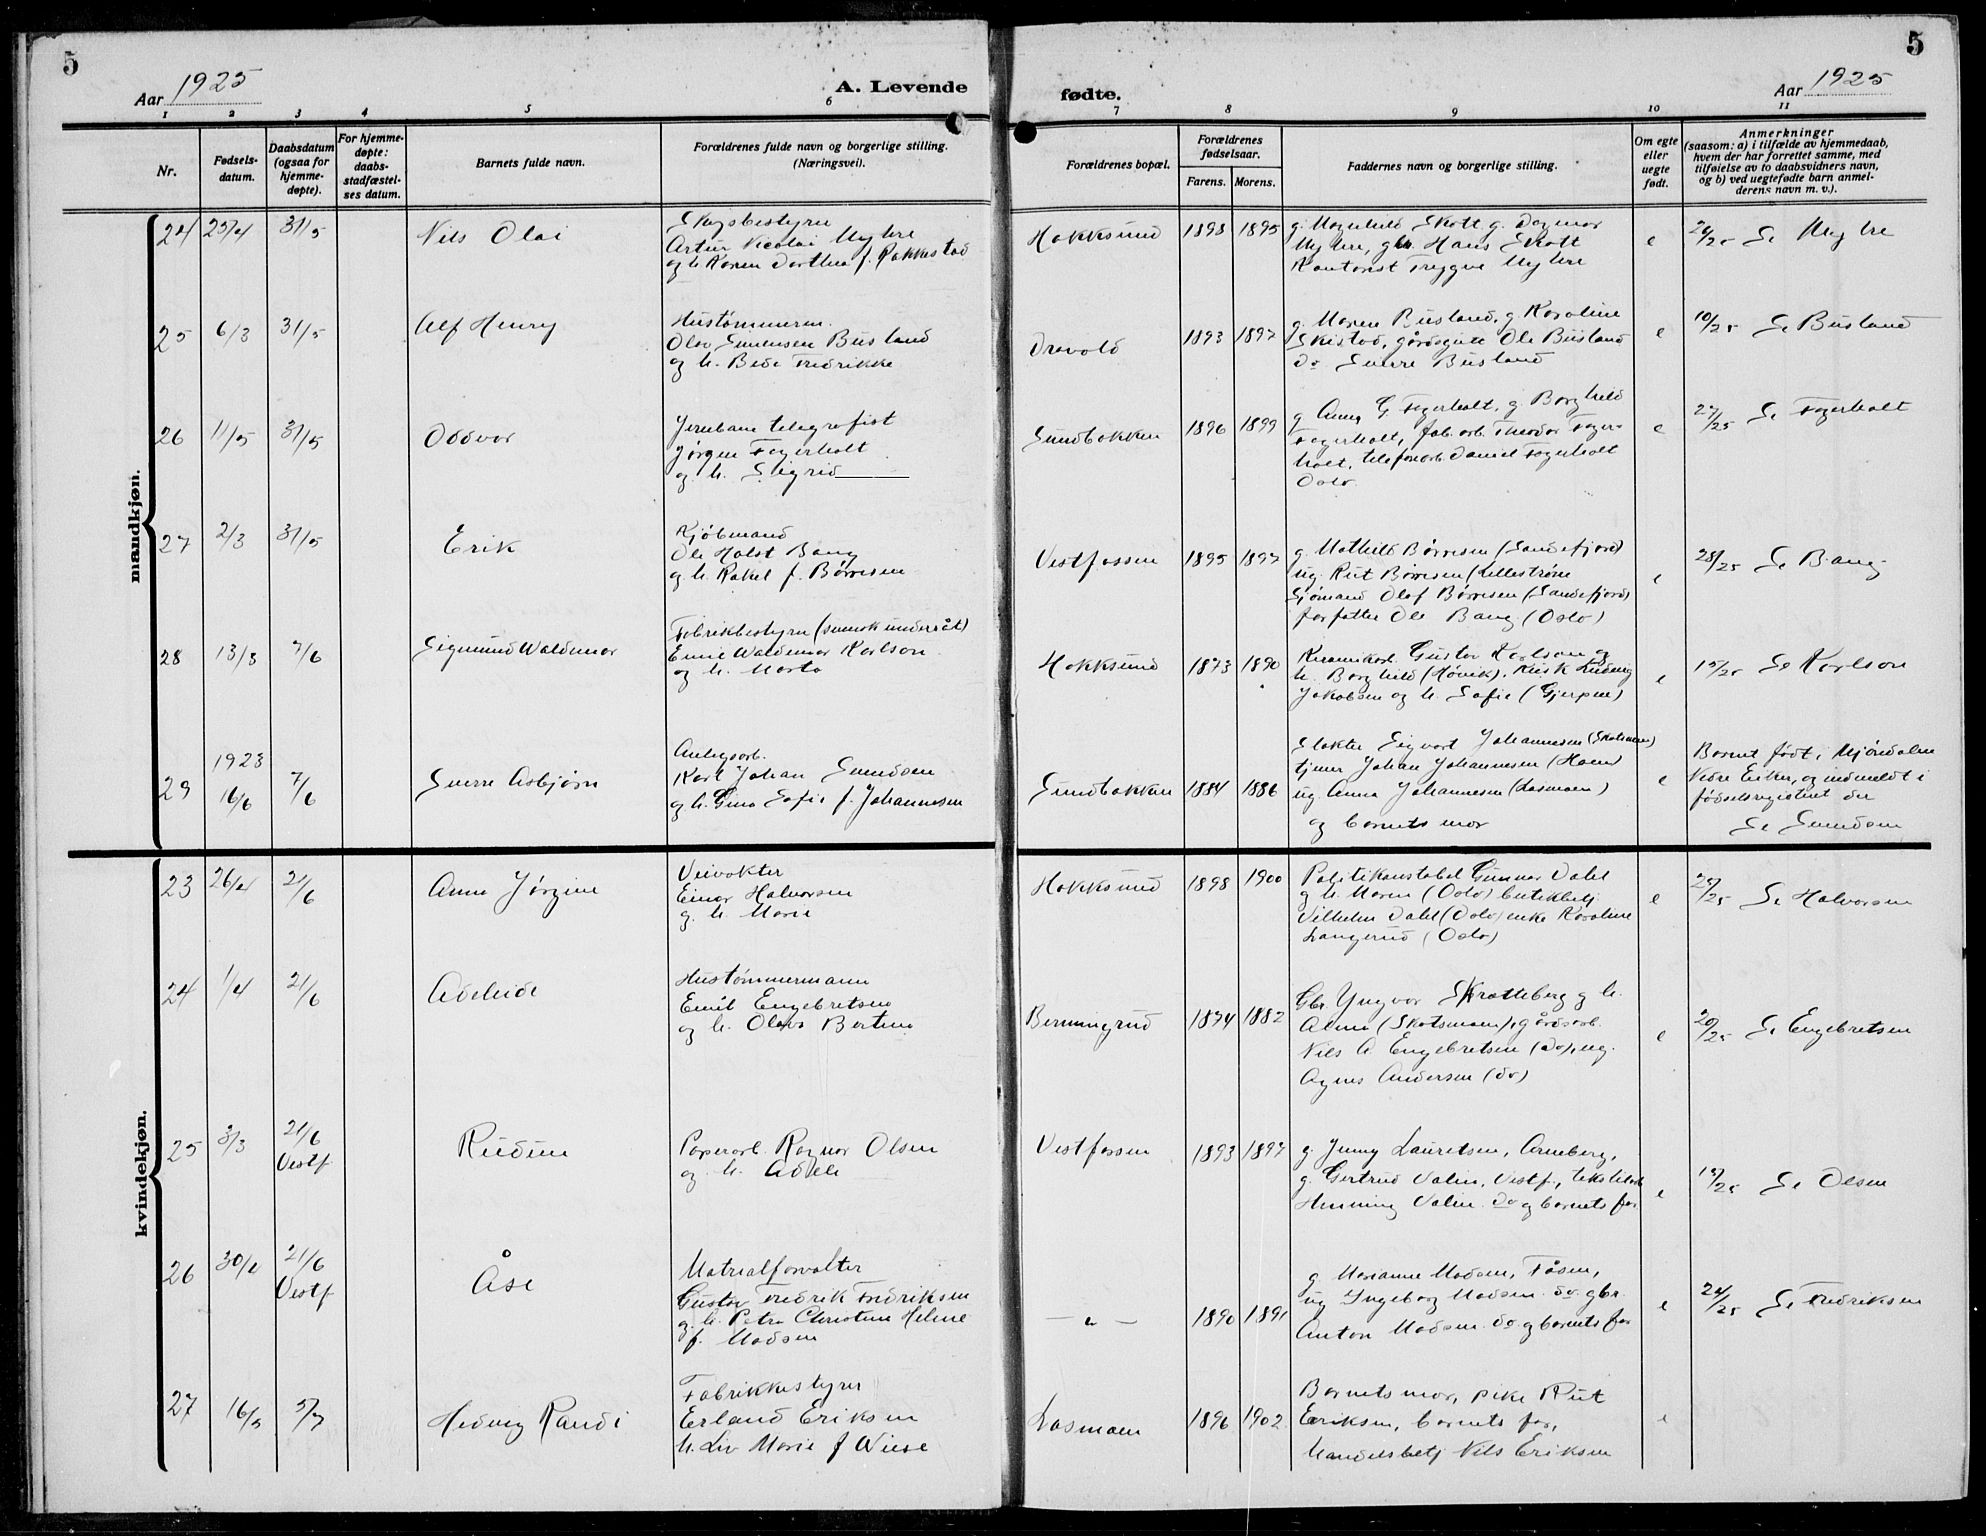 5
Aar 1925
A. Levende
fødte.
Aar 1925
5
1 2 3 4 5 6 7 8 9 10 11
Nr.
Fødsels-
datum.
Daabsdatum
(ogsaa for
hjemme-
døpte).
For hjemme-
døpte:
daabs-
stadfæstel-
ses datum.
Barnets fulde navn.
Forældrenes fulde navn og borgerlige stilling.
(Næringsvei).
Forældrenes bopæl.
Forældrenes
fødselsaar.
Farens. Morens.
Faddernes navn og borgerlige stilling.
Om egte
eller
uegte
født.
Anmerkninger
(saasom: a) i tilfælde av hjemmedaab,
hvem der har forrettet samme, med
tilføielse av to daabsvidners navn,
og b) ved uegtefødte barn anmel-
derens navn m. v.).
mandkjøn.
24 25/4 31/5
Nils Olai
Skysbestyrer
Artur Nicolai Myhre
og h. Karen Dorthea f. Rakkestad
Hokksund 1898 1895
g. Magnhild Skott, g. Dagmar
Myhre, gbr. Hans Skott
Kontorist Trygve Myhre
e
24/25 Se Myhre
25 6/3 31/5
Alf Henry
Hustømmerm.
Olav Sørensen Busland
og h. Beda Fredrikke
Drovold 1893 1897
g. Maren Busland, g. Karoline
Skistad, gårdsgutt Ole Busland
do Sverre Busland
e
10/25 Se Busland
26 11/5 31/5
Oddvar
Jernbane telegrafist
Jørgen Fagerholt
og h. Sigrid
Sundbakken 1896 1899
g. Anna G. Fagerholt, g. Borghild
Fagerholt, fab.arb. Theodor Fager-
holt, telefonarb. Daniel Fagerholt
Oslo.
e
27/25 Se Fagerholt
27 2/3 31/5
Erik
Kjøbmand
Ole Holst Bang
og h. Rakel f. Børresen
Vestfossen 1895 1897
g. Mathild Børresen (Sandefjord)
ug. Rut Børresen (Lillestrøm
Sjømand Olaf Børresen (Sandefjord)
forfatter Ole Bang (Oslo)
e
28/25 Se Bang
28 13/3 7/6
Sigmund Waldemar
Fabrikbestyrer (svensk undersåt)
Emil Waldemar Karlson
og h. Marta
Hokksund 1873 1890
Keramikarb. Gustav Karlson og
h. Borghild (Høvik), Kusk Ludvig
Jakobsen og h. Sofie (Gjerpen)
e
15/25 Se Karlson
29 1923
16/6 7/6
Sverre Asbjørn
Anlegsarb.
Karl Johan Svendsen
og h. Gina Sofie f. Johannesen
Sundbakken 1884 1886
Slakter Sigvart Johannesen (Skotsmoen)
tjener Johan Johannesen (Hoen)
ug. Anna Johannesen (Losmoen)
og barnets mor
e
Barnet født i Mjøndalen
Nedre Eiker, og indmeldt i
fødselsregisteret der
Se Svendsen
kvindekjøn.
23 26/4 21/6
Anna Jørgine
Veivokter
Einar Halvorsen
g. h. Marie
Hokksund 1898 1900
Politikonstabel Gunnar Dahl
g h. Maren (Oslo) butikbetj.
Vilhelm Dahl (Oslo) enke Karoline
Langerud (Oslo)
e
29/25 Se Halvorsen
24 1/4 21/6
Adeleide
Hustømmermann
Emil Engebretsen
og h. Olava Bertine
Berningrud 1874 1882
Gbr. Yngvar Skrotteberg g h.
Alma (Skotsmoen), gårdsarb.
Nils A Engebretsen (do), ug.
Agnes Andersen (do)
e
20/25 Se Engebretsen
25 3/3 21/6
Vestf
Ruduun
Papirarb. Ragnar Olsen
og h. Adele
Vestfossen 1893 1897
g. Jenny Lauretsen, Arneberg,
g. Gertrud Valin, Vestf., tekstilarb
Henning Valin do g barnets far
e
15/25 Se Olsen
26 30/4 21/6
Vestf
Åse
Matrialforvalter
Gustav Fredrik Fredriksen
g. h. Petra Christine Helene
f. Madsen
— " — 1890 1891
g. Marianne Madsen, Fåsen,
ug Ingeborg Madsen do gbr.
Anton Madsen do g barnets far
e
24/25 Se Fredriksen
27 16/5 5/7
Hedvig Randi
Fabrikkestyrer
Erland Eriksen
h. Liv Marie f Wiese
Losmoen 1896 1902
Barnets mor, pike Rut
Eriksen, barnets far,
handelsbetj Nils Eriksen
e